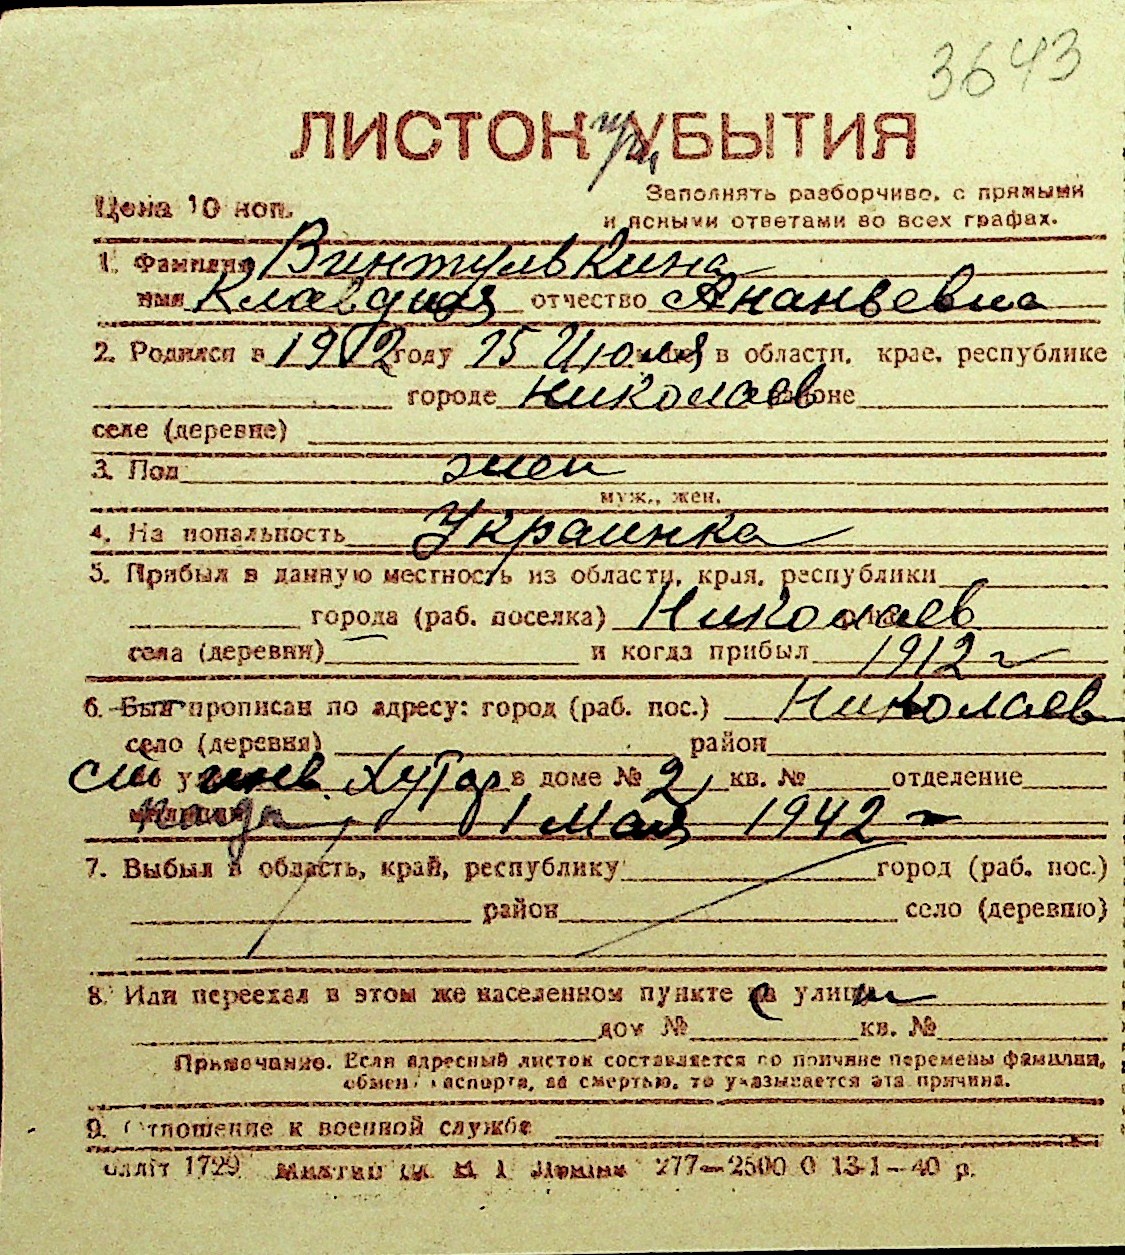 3643
ЛИСТОК УБЫТИЯ
Цена 10 коп.
Заполнять разборчиво, с прямыми
и ясными ответами во всех графах.
1. Фамилия Винтулькина
имя Клавдия отчество Ананьевна
2. Родился в 1912 году 25 Июля в области, крае, республике
городе Николаев районе
селе (деревне)
3. Пол жен
муж., жен.
4. Национальность Украинка
5. Прибыл в данную местность из области, края, республики
города (раб. поселка) Николаев
села (деревни) и когда прибыл 1912 г
6. Был прописан по адресу: город (раб. пос.) Николаев
село (деревня) район
Хутор в доме № 2 кв. № отделение
милиции 1 Мая 1942 г
7. Выбыл в область, край, республику город (раб. пос.)
район село (деревню)
8. Или переехал в этом же населенном пункте на улицу
дом № кв. №
Примечание. Если адресный листок составляется по причине перемены фамилии,
обмена паспорта, за смертью, то указывается эта причина.
9. Отношение к военной службе
1729 277—2500 0 13-1—40 р.